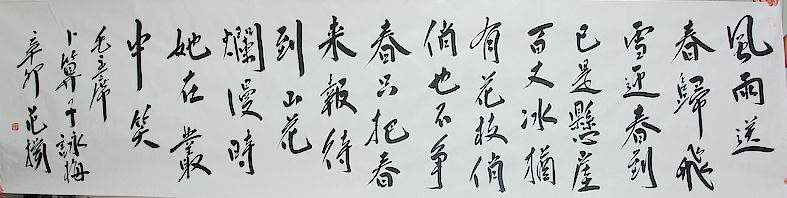 風雨送
春歸飛
雪迎春到
已是懸崖
百丈冰猶
有花枝俏
俏也不争
春只把春
来報待
到山花
爛漫時
她在叢
中笑
毛主席
卜算子詠梅
辛卯范